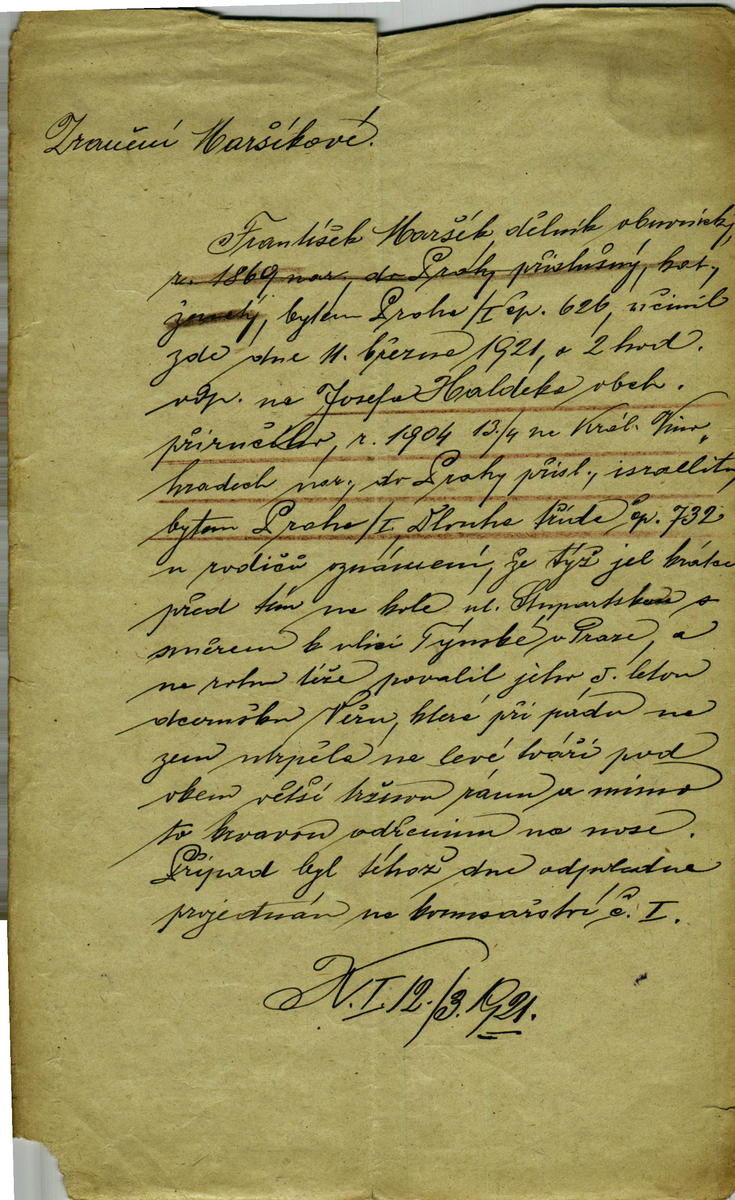 Zranění Maršíkové.
František Maršík, dělník obuvnický,
r. 1869 nar., do Prahy příslušný, kat.,
ženatý, bytem Praha/I čp. 626, učinil
zde dne 11. března 1921, o 2 hod.
odp. na Josefa Haldeka obch.
příručího, r. 1904 13./4 na Král. Vino„
hradech nar., do Prahy přísl., israelitu,
bytem Praha/I, Dlouhá třída čp. 732
u rodičů oznámení, že týž jel krátce
před tím na kole ul. Stupartskou s
směrem k ulici Týnské v Praze, a
na rohu téže povalil jeho 5. letou
dcerušku Věru, která při pádu na
zem utrpěla na levé tváři pod
okem větší tržnou ránu a mimo
to krvavou odřeninu na nose.
Případ byl téhož dne odpoledne
projednán na komisařství č. I.
N. I. 12./3. 1921.